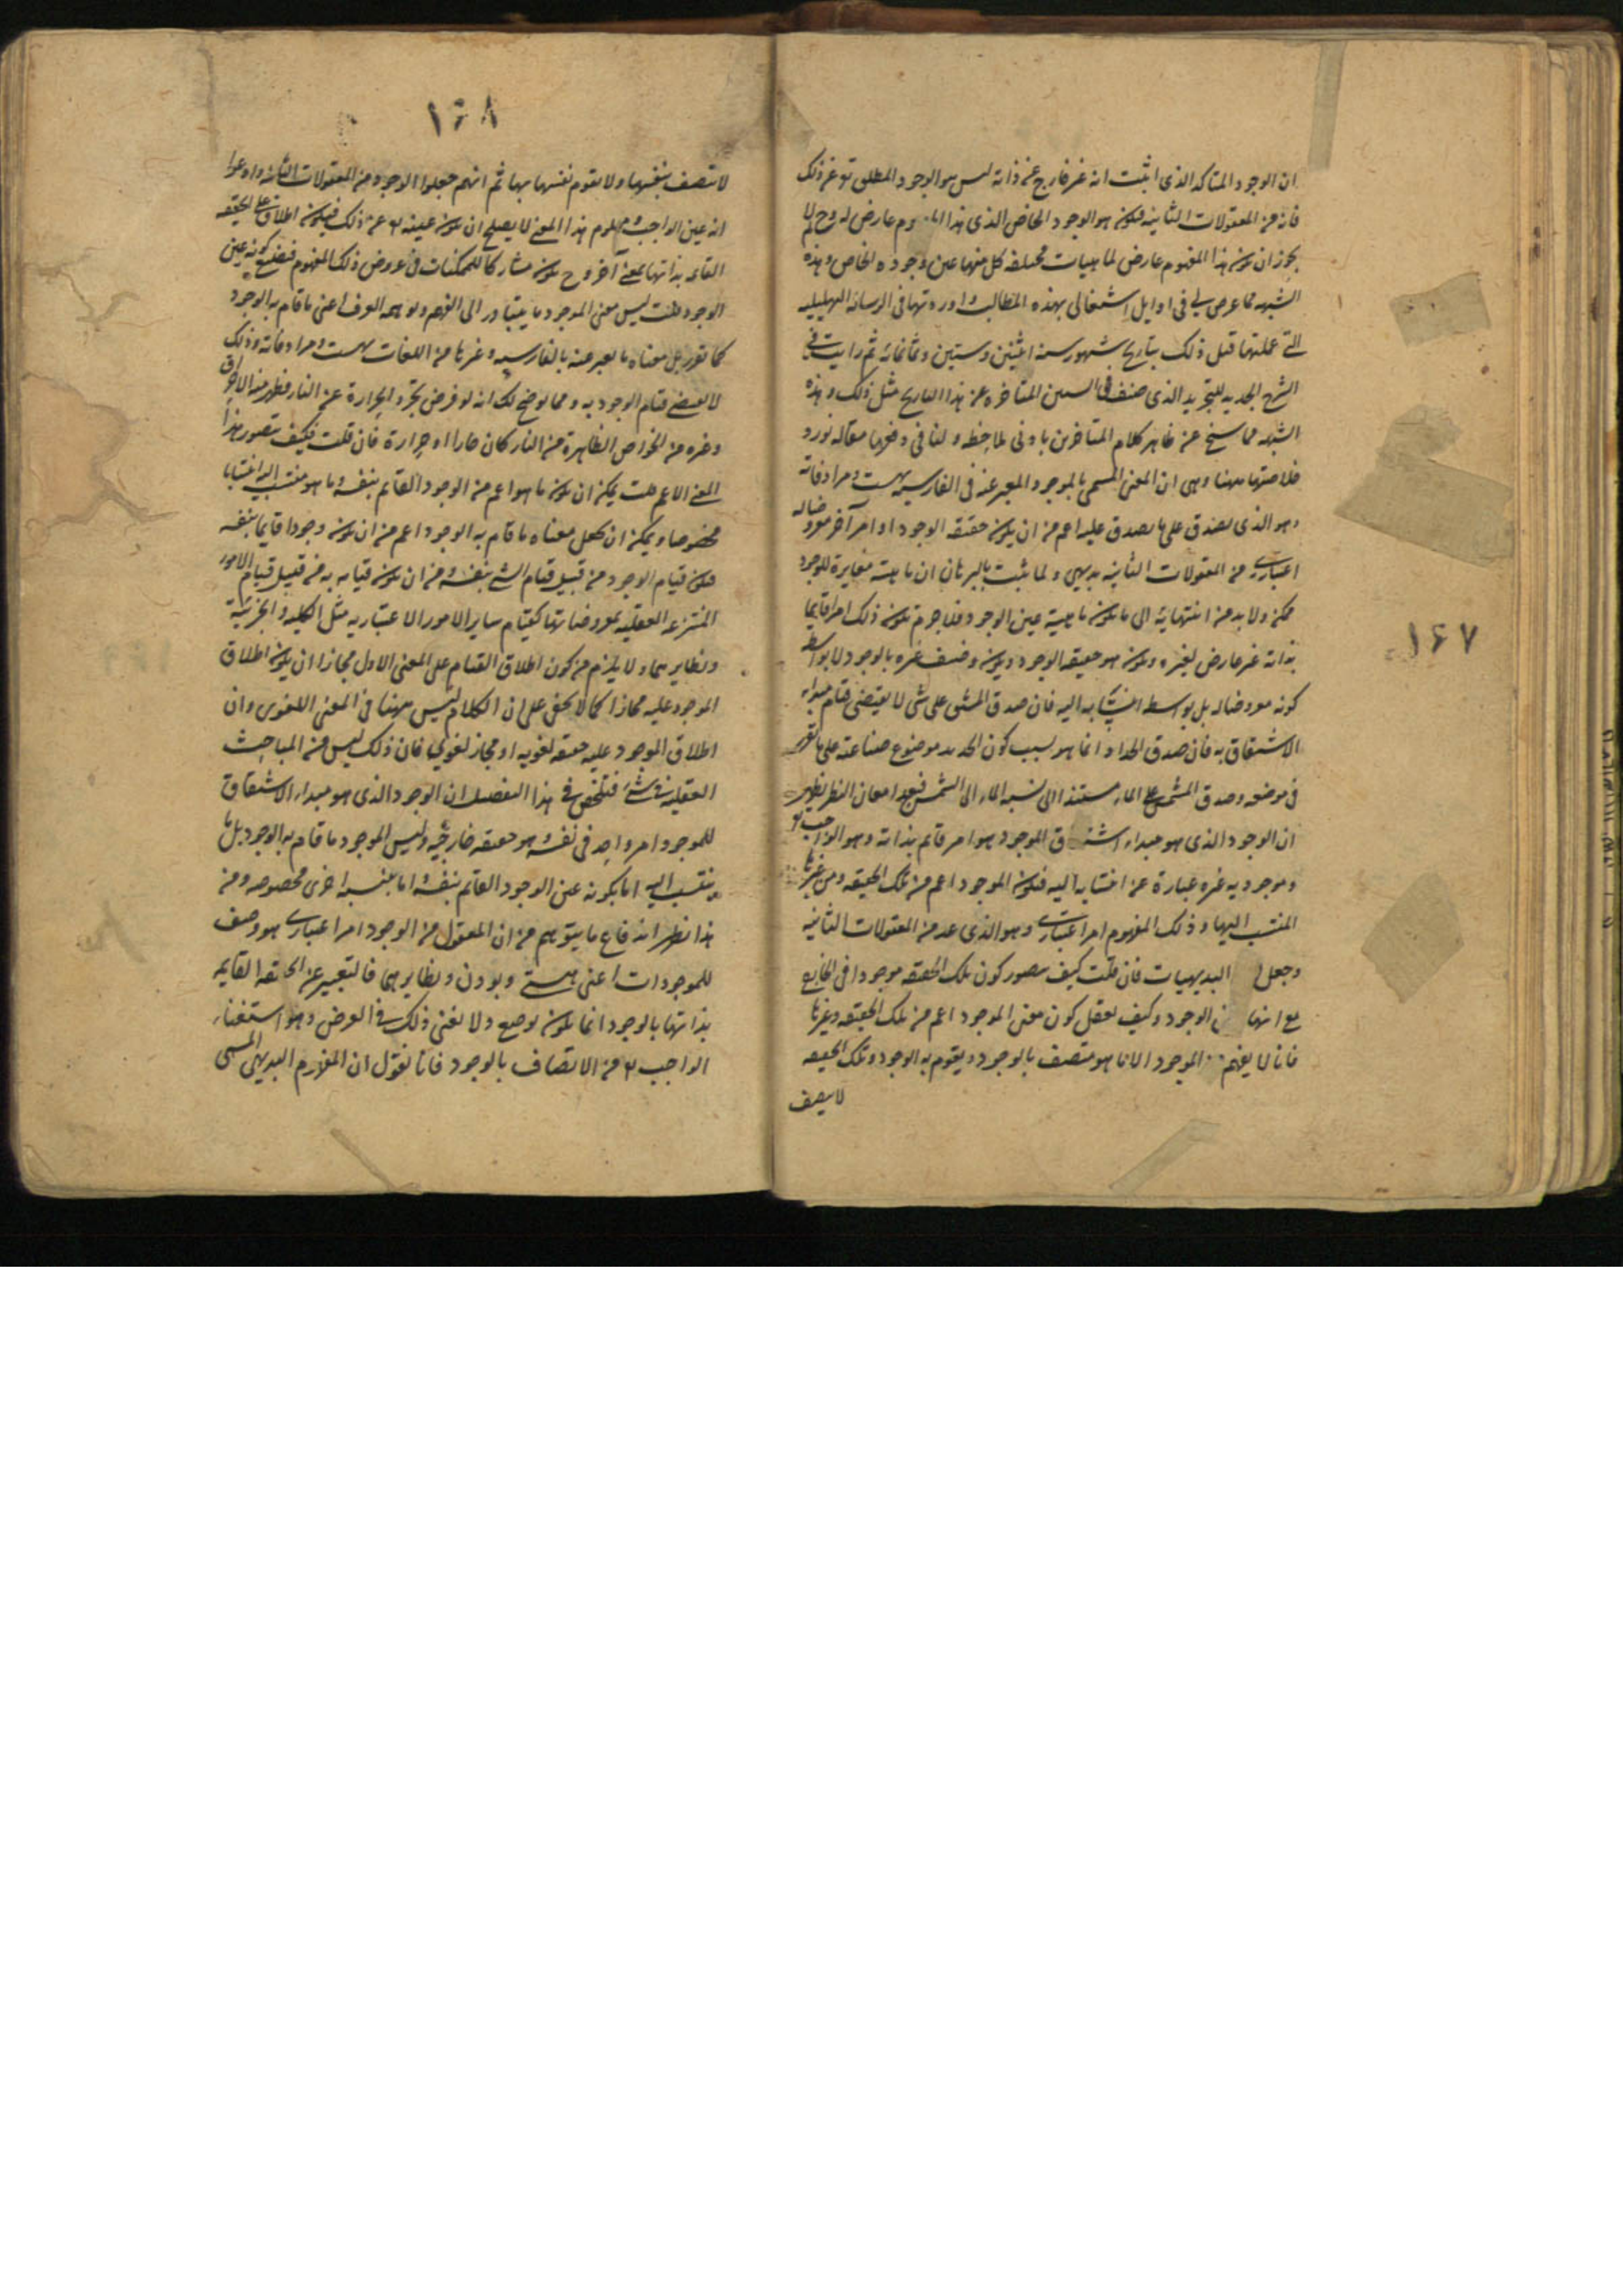 ان الوجود المتاكد الذى اثبت انه غير خارج عن ذاته ليس هو الوجود المطلق تو عن ذلك
فانه من المعقولات الثانيه فيكون هو الوجود الخاص الذى هذا المفهوم عارض له وح لم لا
يجوز ان يكون هذا المفهوم عارض لماهيات مختلفه كل منها عين وجوده الخاص وهذه
الشبهه مما عرض لى فى اوايل اشتغالى بهذه المطالب واوردتها فى الرساله التهليليه
التى عملتها قبل ذلك بتاريخ شهور سنه اثنين وستين وثمانمائه ثم رايت فى
الشرح الجديد للتجريد الذى صنف فى السنين المتاخره عن هذا التاريخ مثل ذلك وهذه
الشبهه مما سنح عن ظاهر كلام المتاخرين بادنى ملاحظه ولنا فى دفعها مقاله نورد
خلاصتها ههنا وهى ان المعنى المسمى بالموجود المعبر عنه فى الفارسيه بهست ومرادفاته
وهو الذى يصدق على ما يصدق عليه اعم من ان يكون حقيقه الوجود او امر آخر معروضا له
اعتبارى من المعقولات الثانيه بديهى ولما ثبت بالبرهان ان ماهيته مغايرة للوجود
ممكن ولا بد من انتهائه الى ما يكون ماهيته عين الوجود فلا جرم يكون ذلك امرا قايما
بذاته غير عارض لغيره ويكون هو حقيقه الوجود ويكون وصف غيره بالوجود لا بواسطه
كونه معروضا له بل بواسطه انتسابه اليه فان صدق المشتق على شى لا يقتضى قيام مبدا
الاشتقاق به فان صدق الحداد انما هو بسبب كون الحديد موضوع صناعته على ما تقرر
فى موضعه وصدق المشمس على الماء مستند الى نسبه الماء الى الشمس فبعد امعان النظر يظهر
ان الوجود الذى هو مبداء اشتقاق الموجود هو امر قائم بذاته وهو الواجب تو
وموجوديه غيره عبارة عن انتسابه اليه فيكون الموجود اعم من تلك الحقيقه ومن غيرها
المنتسب اليها وذلك المفهوم امر اعتبارى وهو الذى عد من المعقولات الثانيه
وجعل البديهيات فان قلت كيف يتصور كون تلك الحقيقه موجودا فى الخارج
مع انها الوجود وكيف يعقل كون معنى الموجود اعم من تلك الحقيقه وغيرها
فانا لا يفهم الموجود الا ما هو متصف بالوجود ويقوم به الوجود وتلك الحقيقه
لا يتصف
١٦٧
١٦٨
لا يتصف بنفسها ولا يقوم نفسها بها ثم انهم جعلوا الوجود من المعقولات الثانيه وادعوا
انه عين الواجب ومعلوم هذا المعنى لا يصلح ان يكون عينه تع عن ذلك فيكون اطلاقه على الحقيقه
القائمه بذاتها بمعنى آخر وح يكون مشاركا للممكنات فى عروض ذلك المفهوم فيضيع كونه عين
الوجود قلت ليس معنى الموجود ما يتبادر الى الفهم ويوهمه العرف اعنى ما قام به الوجود
كما تقرر بل معناه ما يعبر عنه بالفارسيه وغيرها من اللغات بهست ومرادفاته وذلك
لا يقتضى قيام الوجود به ومما يوضح لك انه لو فرض تجرد الحرارة عن النار فظهر منه الاحراق
وغيره من الخواص الظاهرة من النار كان حارا او حرارة فان قلت فكيف يتصور هذا
المعنى الاعم قلت يمكن ان يكون ما هو اعم من الوجود القايم بنفسه وما هو منتسب اليه انتسابا
مخصوصا ويمكن ان يجعل معناه ما قام به الوجود اعم من ان يكون وجودا قايما بنفسه
فيكون قيام الوجود من قبيل قيام الشى بنفسه ومن ان يكون قيامه به من قبيل قيام الامور
المنتزعه العقليه بمعروضاتها كقيام ساير الامور الاعتباريه مثل الكليه والجزئية
ونظايرهما ولا يلزم من كون اطلاق القيام على المعنى الاول مجازا ان يكون اطلاق
الموجود عليه مجازا كما لا يخفى على ان الكلام ليس ههنا فى المعنى اللغوى وان
اطلاق الموجود عليه حقيقه لغويه او مجاز لغوى فان ذلك ليس من المباحث
العقليه فى شئ فتلخص فى هذا التفصيل ان الوجود الذى هو مبداء الاشتقاق
للموجود امر واحد فى نفسه هو حقيقه خارجيه وليس الموجود ما قام به الوجود بل ما
ينتسب اليه اما بكونه عين الوجود القائم بنفسه اما بنسبه اخرى مخصوصه ومن
هذا نظر اندفاع ما يتوهم من ان المعقول من الوجود امر اعتبارى هو وصف
للموجودات اعنى هستى وبودن ونظايرهما فالتعبير عن الحقيقه القايمه
بذاتها بالوجود انما يكون بوضع ولا يغنى ذلك فى الغرض وهو استغناء
الواجب تع من الاتصاف بالوجود فانا نقول ان المفهوم البديهى المسمى